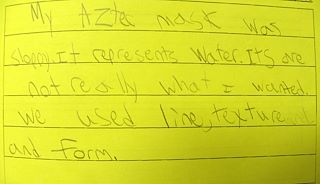 My Aztec mask was
sloppy.It represents water.Its are
not really what I wanted.
we used line,texture and
and form.